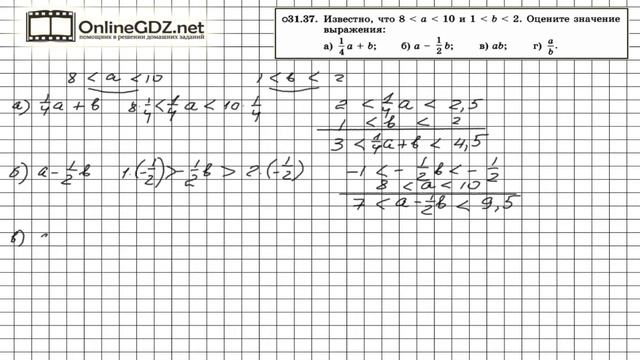 OnlineGDZ.net
ПОМОЩНИК В РЕШЕНИИ ДОМАШНИХ ЗАДАНИЙ
О31.37. Известно, что 8 < a < 10 и 1 < b < 2. Оцените значение
выражения:
а) 1/4 a + b; б) a − 1/2 b; в) ab; г) a/b.
8 < a < 10 1 < b < 2
а) 1/4 a + b 8·1/4 < 1/4 a < 10·1/4 2 < 1/4 a < 2,5
1 < b < 2
3 < 1/4 a + b < 4,5
б) a − 1/2 b 1·(−1/2) > −1/2 b > 2·(−1/2) −1 < −1/2 b < −1/2
8 < a < 10
7 < a − 1/2 b < 9,5
в)